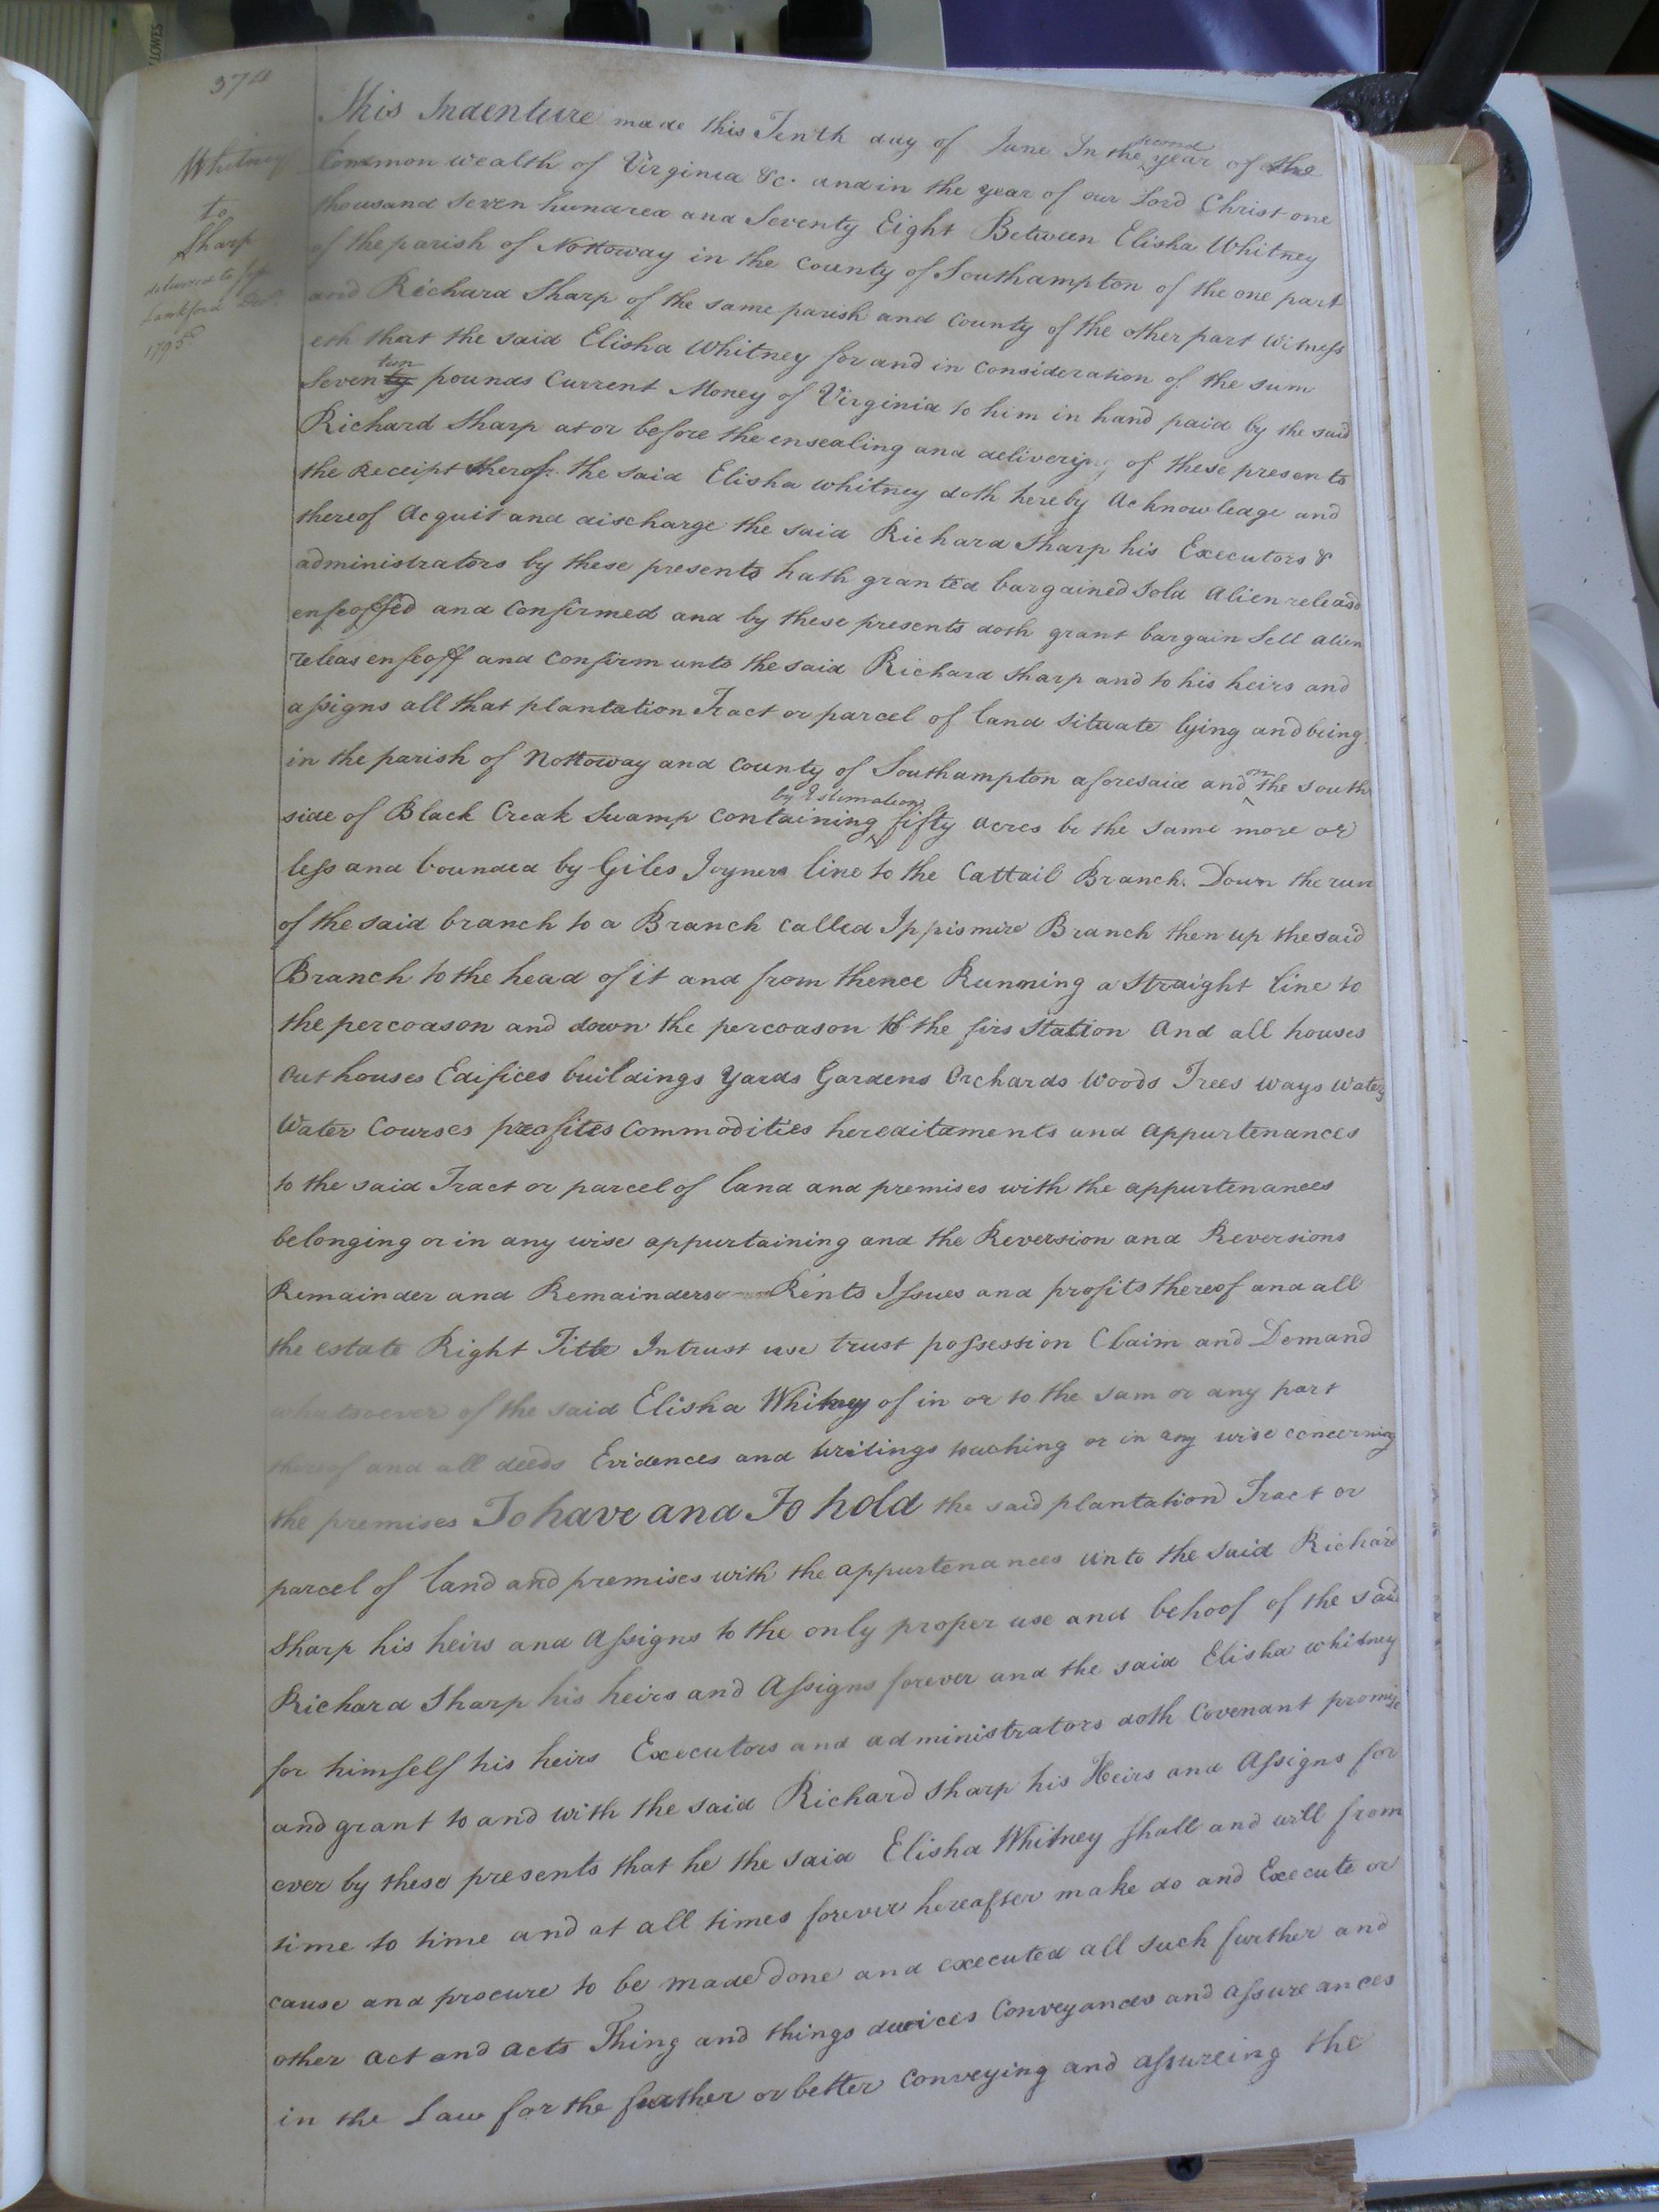 374
Whitney
to
Sharp
delivered to
Lankford
1795
This Indenture made this Tenth day of June In the second year of the
Common wealth of Virginia &c. and in the year of our Lord Christ one
thousand Seven hundred and Seventy Eight Between Elisha Whitney
of the parish of Nottoway in the County of Southampton of the one part
and Richard Sharp of the same parish and County of the other part Witness
eth that the said Elisha Whitney for and in Consideration of the sum
Seventy teen pounds Current Money of Virginia to him in hand paid by the said
Richard Sharp at or before the ensealing and delivering of these presents
the Receipt therof the said Elisha Whitney doth hereby Acknowledge and
thereof Acquit and discharge the said Richard Sharp his Executors &
administrators by these presents hath granted bargained Sold Alien releasd
enfeoffed and Confirmed and by these presents doth grant bargain Sell alien
releas enfeoff and Confirm unto the said Richard Sharp and to his heirs and
assigns all that plantation Tract or parcel of land situate lying and being
in the parish of Nottoway and County of Southampton aforesaid and on the south
side of Black Creak Swamp Containing by Estimation fifty acres be the same more or
less and bounded by Giles Joyners line to the Cattail Branch. Down the run
of the said branch to a Branch called Ippismire Branch then up the said
Branch to the head of it and from thence Running a Straight line to
the percoason and down the percoason to the firs Station And all houses
Out houses Edifices buildings Yards Gardens Orchards Woods Trees ways waters
Water Courses profites Commodities hereditaments and appurtenances
to the said Tract or parcel of land and premises with the appurtenances
belonging or in any wise appurtaining and the Reversion and Reversions
Remainder and Remainders Rents Issues and profits thereof and all
the estate Right Title Intrust use trust possession Claim and Demand
whatsoever of the said Elisha Whitney of in or to the sam or any part
thereof and all deeds Evidences and writings touching or in any wise concerning
the premises To have and To hold the said plantation Tract or
parcel of land and premises with the appurtenances unto the said Richard
Sharp his heirs and Assigns to the only proper use and behoof of the said
Richard Sharp his heirs and Assigns forever and the said Elisha whitney
for himself his heirs Executors and administrators doth Covenant promise
and grant to and with the said Richard Sharp his Heirs and Assigns for
ever by these presents that he the said Elisha Whitney shall and will from
time to time and at all times forever hereafter make do and Execute or
cause and procure to be made done and executed all such further and
other act and acts Thing and things devices Conveyances and assureances
in the Law for the further or better Conveying and assureing the